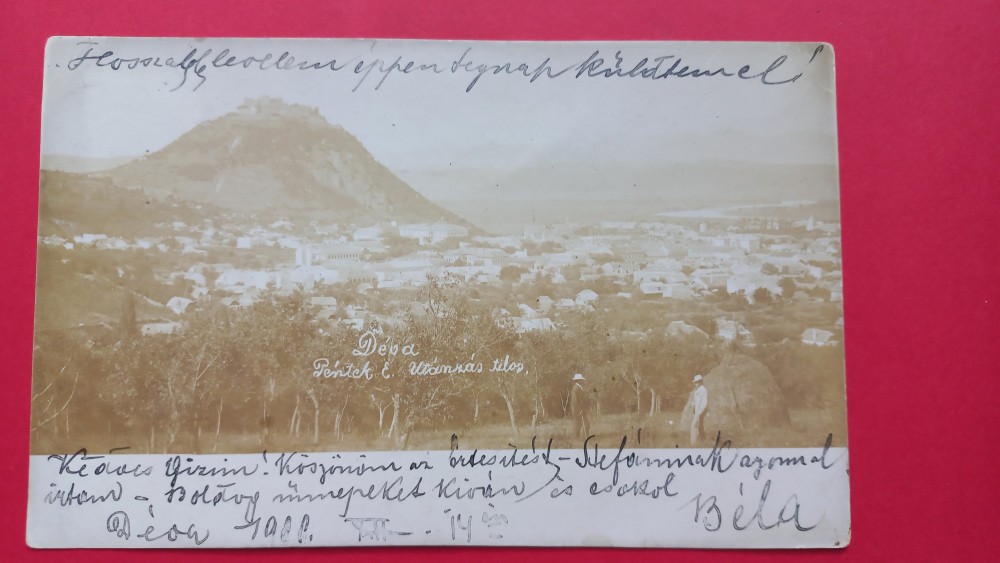 Hosszabb levelem éppen tegnap küldtem el!
Déva
Péntek E. Utánzás tilos.
Kedves Gizim! Köszönöm az Értesítést – Stefáninak azonnal
irtam – Boldog ünnepeket kiván és csókol
Béla
Déva XII – 14 én